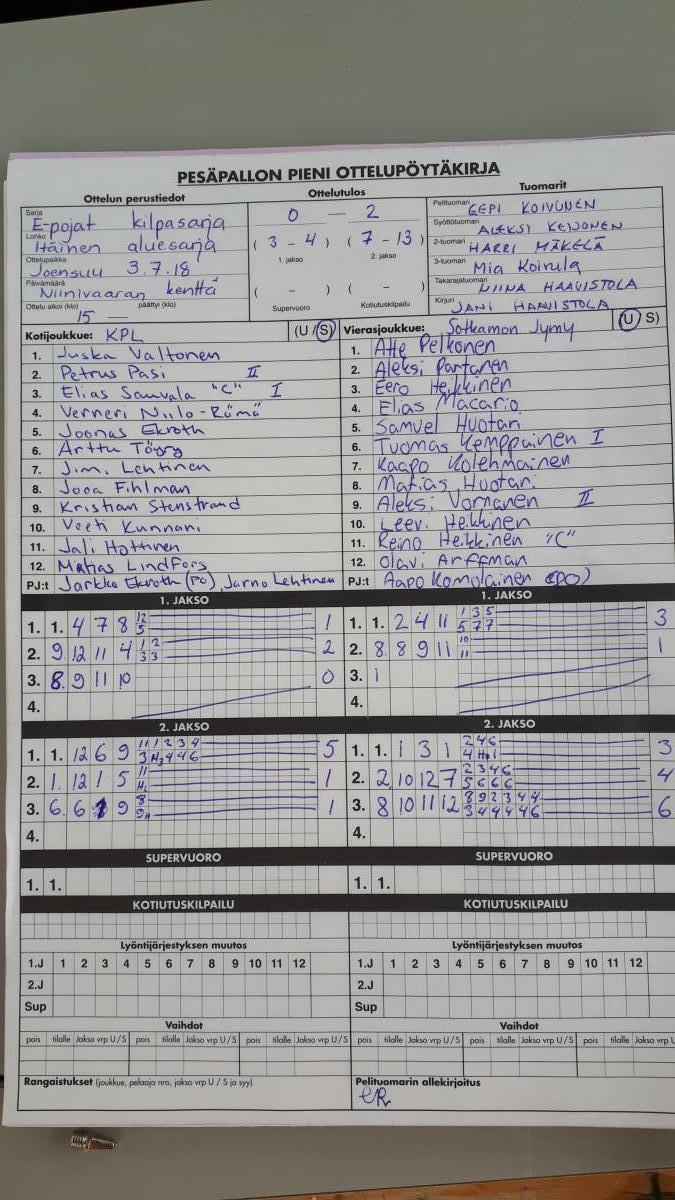 PESÄPALLON PIENI OTTELUPÖYTÄKIRJA
Ottelun perustiedot
Sarja E-pojat kilpasarja
Lohko Itäinen aluesarja
Ottelupaikka Joensuu 3.7.18
Päivämäärä Niinivaaran kenttä
Ottelu alkoi (klo) 15 — päättyi (klo)
Ottelutulos
0 — 2
( 3 - 4 ) ( 7 - 13 )
1. jakso 2. jakso
( - ) ( - )
Supervuoro Kotiutuskilpailu
Tuomarit
Pelituomari EEPI KOIVUNEN
Syöttötuomari ALEKSI KEIJONEN
2-tuomari HARRI MÄKELÄ
3-tuomari Mia Koivula
Takarajatuomari NIINA HAAVISTOLA
Kirjuri JANI HAAVISTOLA
Kotijoukkue: KPL (U / S)
1. Juska Valtonen
2. Petrus Pasi II
3. Elias Sauvala "C" I
4. Verneri Niilo-Rämä
5. Joonas Ekroth
6. Arttu
7. Jimi Lehtinen
8. Jooa Fihlman
9. Kristian Stenstrand
10. Veeti Kunnani
11. Jali Hottinen
12. Matias Lindfors
PJ:t Jarkko Ekroth (PO), Jarno Lehtinen
Vierasjoukkue: Sotkamon Jymy (U S)
1. Atte Pelkonen
2. Aleksi Partanen
3. Eero Heikkinen
4. Elias Macario
5. Samuel Huotari
6. Tuomas Kemppainen I
7. Kaapo Kolehmainen
8. Matias Huotari
9. Aleksi Vornanen II
10. Leevi Heikkinen
11. Reino Heikkinen "C"
12. Olavi Arffman
PJ:t Aapo Komulainen (PO)
1. JAKSO
1. 1. 4 7 8 12 5 1
2. 9 12 11 4 1 2 3 3 2
3. 8. 9 11 10 0
4.
1. JAKSO
1. 1. 2 4 11 1 3 5 5 7 7 3
2. 8 8 9 11 10 11 1
3. 1
4.
2. JAKSO
1. 1. 12 6 9 11 1 2 3 4 3 H3 4 4 6 5
2. 1. 12 1 5 11 1
3. 6. 6 9 8 1
4.
2. JAKSO
1. 1. 1 3 1 2 4 6 4 1 3
2. 2 10 12 7 2 3 4 6 5 6 6 6 4
3. 8 10 11 12 8 9 2 3 4 4 3 4 4 4 4 6 6
4.
SUPERVUORO
1. 1.
SUPERVUORO
1. 1.
KOTIUTUSKILPAILU
KOTIUTUSKILPAILU
Lyöntijärjestyksen muutos
1.J 1 2 3 4 5 6 7 8 9 10 11 12
2.J
Sup
Lyöntijärjestyksen muutos
1.J 1 2 3 4 5 6 7 8 9 10 11 12
2.J
Sup
Vaihdot
pois tilalle Jakso vrp U/S pois tilalle Jakso vrp U/S pois tilalle Jakso vrp U/S
Vaihdot
pois tilalle Jakso vrp U/S pois tilalle Jakso vrp U/S pois tilalle Jakso vrp U
Rangaistukset (joukkue, pelaaja nro, jakso vrp U / S ja syy)
Pelituomarin allekirjoitus